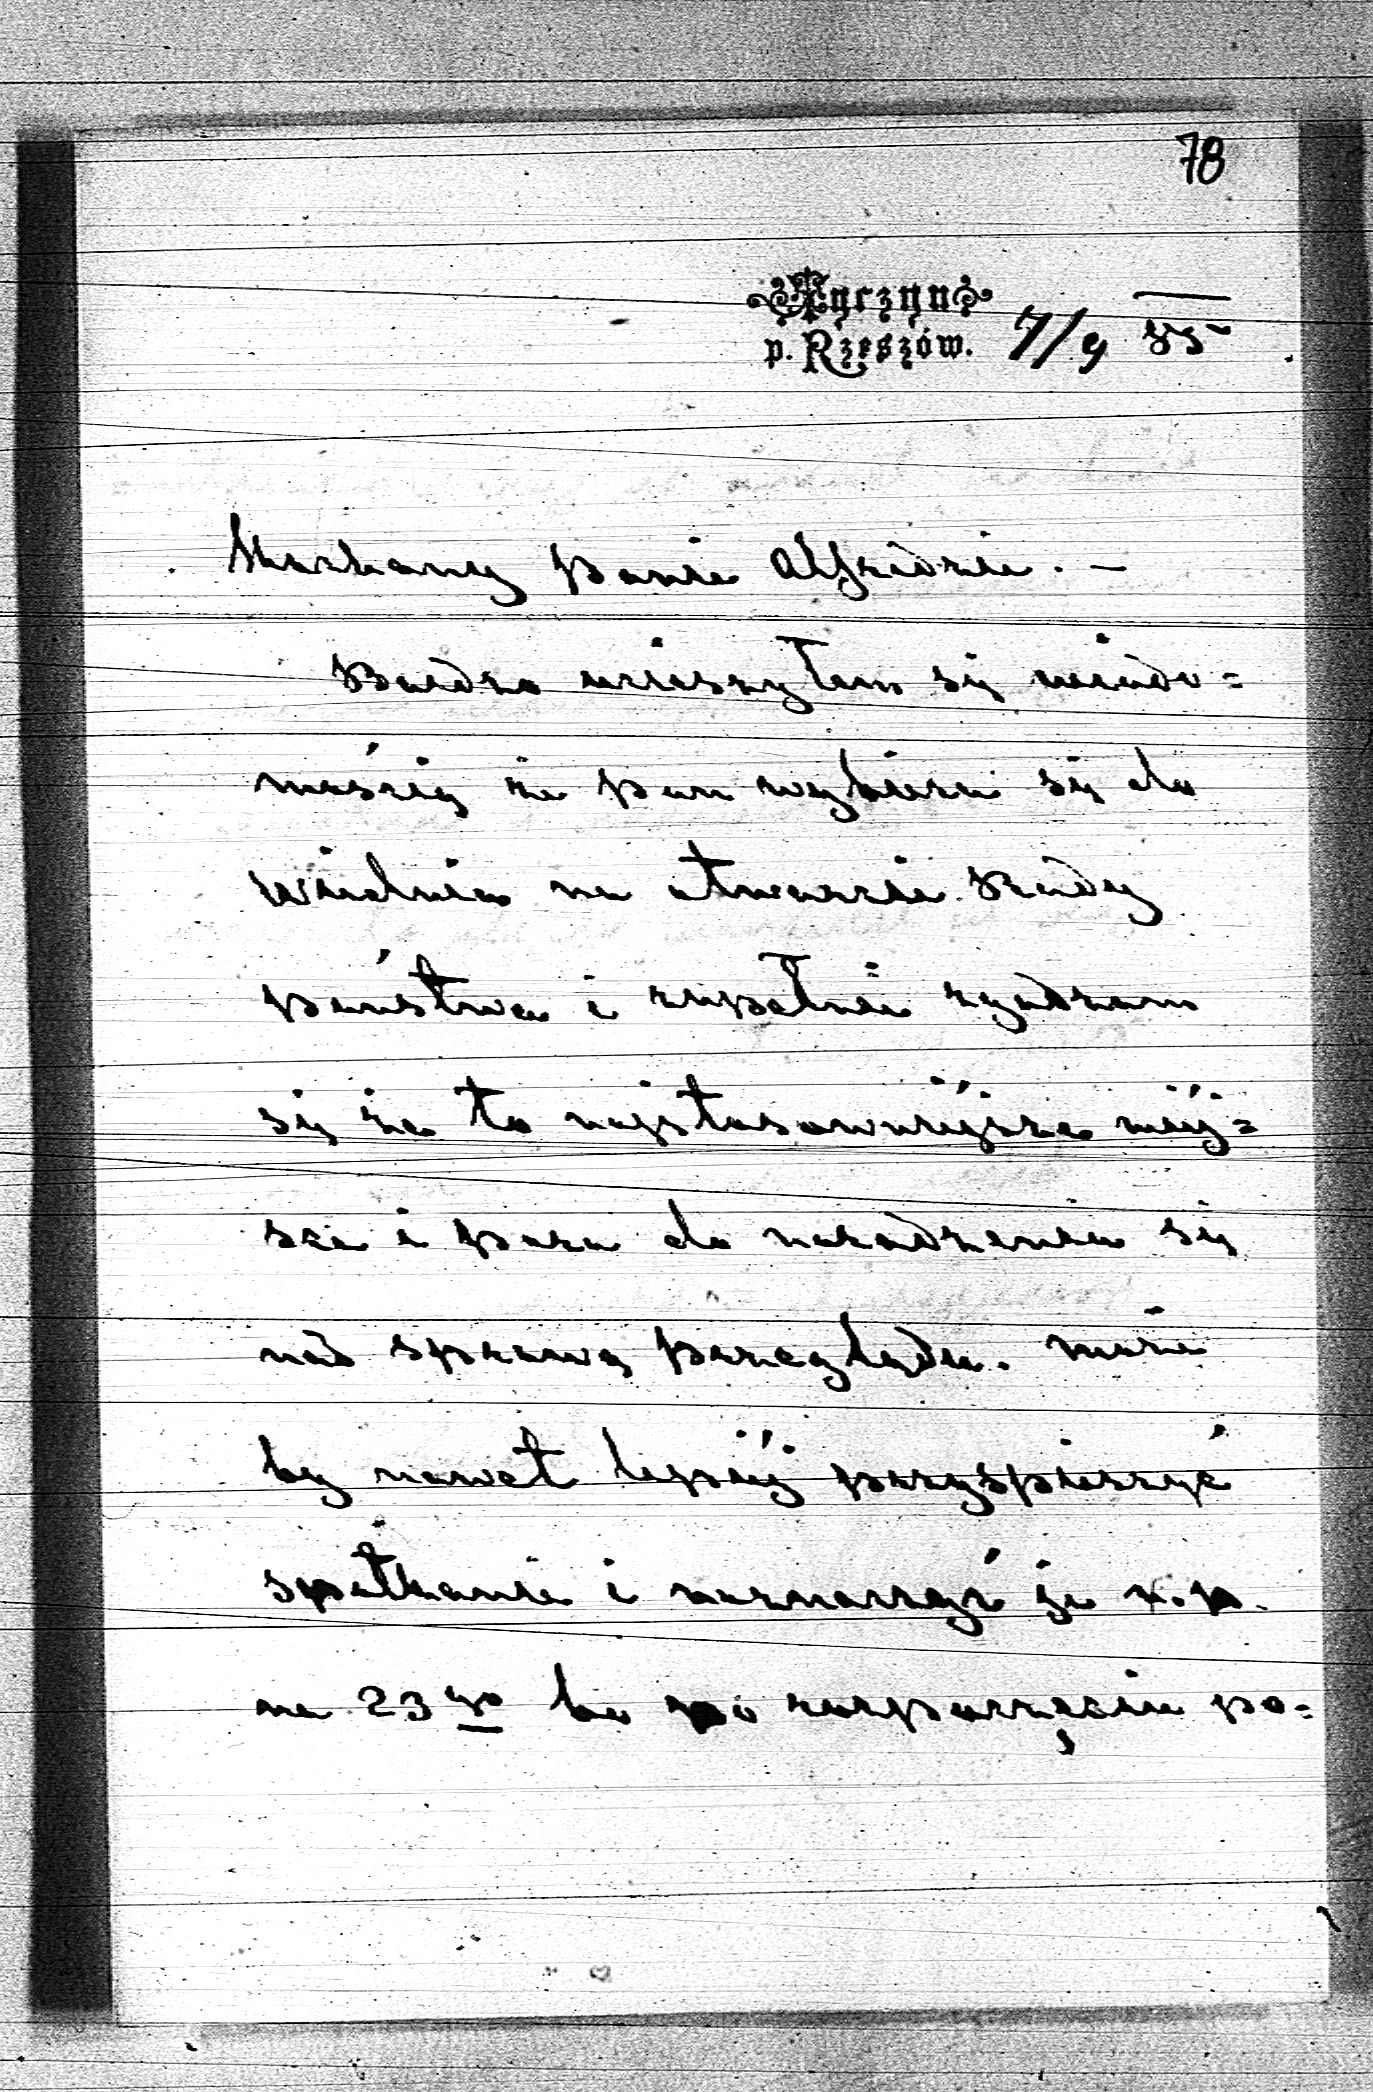 78
Tyczyn
p. Rzeszów. 7/9 85
Kochany Panie Alfredzie. —
Bardzo ucieszyłem się wiado=
mością że pan wybiera się do
Wiednia na otwarcie Rady
państwa i zupełnie zgadzam
się że to najstosowniejsze miej=
sce i pora do naradzenia się
nad sprawą przeglądu. Może
by nawet lepiéj przyspieszyć
spotkanie i naznaczyć je n.p.
na 23go bo po rozpoczęciu po=